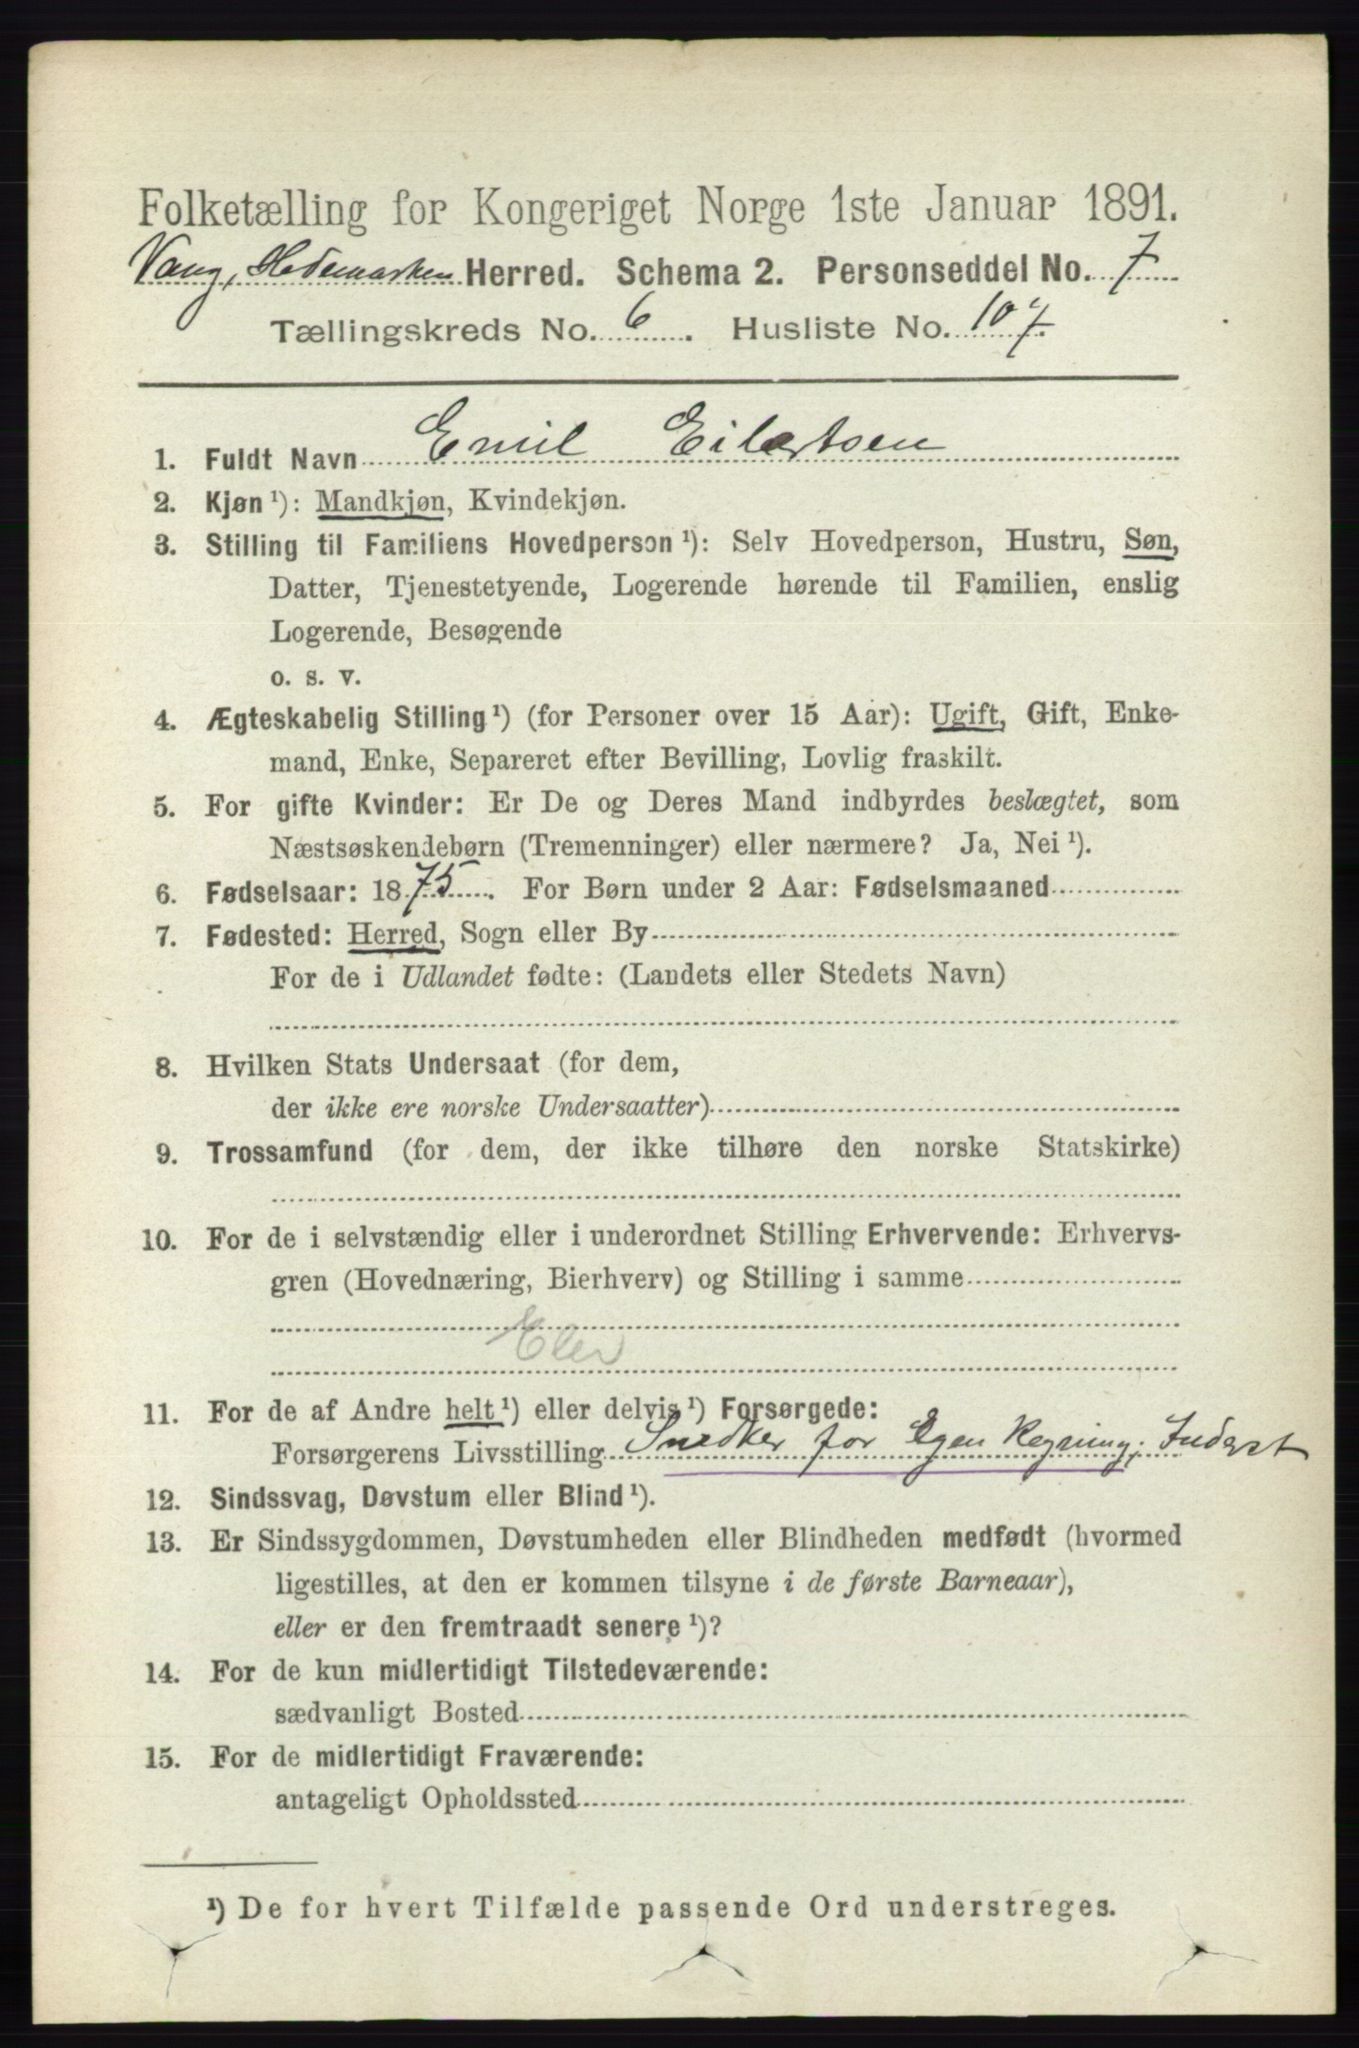 Folketælling for Kongeriget Norge 1ste Januar 1891.
Vang, Hedemarken Herred. Schema 2. Personseddel No. 7
Tællingskreds No. 6. Husliste No. 107.
1. Fuldt Navn Emil Eilertsen
2. Kjøn ¹): Mandkjøn, Kvindekjøn.
3. Stilling til Familiens Hovedperson ¹): Selv Hovedperson, Hustru, Søn,
Datter, Tjenestetyende, Logerende hørende til Familien, enslig
Logerende, Besøgende
o. s. v.
4. Ægteskabelig Stilling ¹) (for Personer over 15 Aar): Ugift, Gift, Enke-
mand, Enke, Separeret efter Bevilling, Lovlig fraskilt.
5. For gifte Kvinder: Er De og Deres Mand indbyrdes beslægtet, som
Næstsøskendebørn (Tremenninger) eller nærmere? Ja, Nei ¹).
6. Fødselsaar: 1875. For Børn under 2 Aar: Fødselsmaaned
7. Fødested: Herred, Sogn eller By
For de i Udlandet fødte: (Landets eller Stedets Navn)
8. Hvilken Stats Undersaat (for dem,
der ikke ere norske Undersaatter)
9. Trossamfund (for dem, der ikke tilhøre den norske Statskirke)
10. For de i selvstændig eller i underordnet Stilling Erhvervende: Erhvervs-
gren (Hovednæring, Bierhverv) og Stilling i samme
Elev
11. For de af Andre helt ¹) eller delvis ¹) Forsørgede:
Forsørgerens Livsstilling Snedker for Egen Regning, Inderst
12. Sindssvag, Døvstum eller Blind ¹).
13. Er Sindssygdommen, Døvstumheden eller Blindheden medfødt (hvormed
ligestilles, at den er kommen tilsyne i de første Barneaar),
eller er den fremtraadt senere ¹)?
14. For de kun midlertidigt Tilstedeværende:
sædvanligt Bosted
15. For de midlertidigt Fraværende:
antageligt Opholdssted
¹) De for hvert Tilfælde passende Ord understreges.